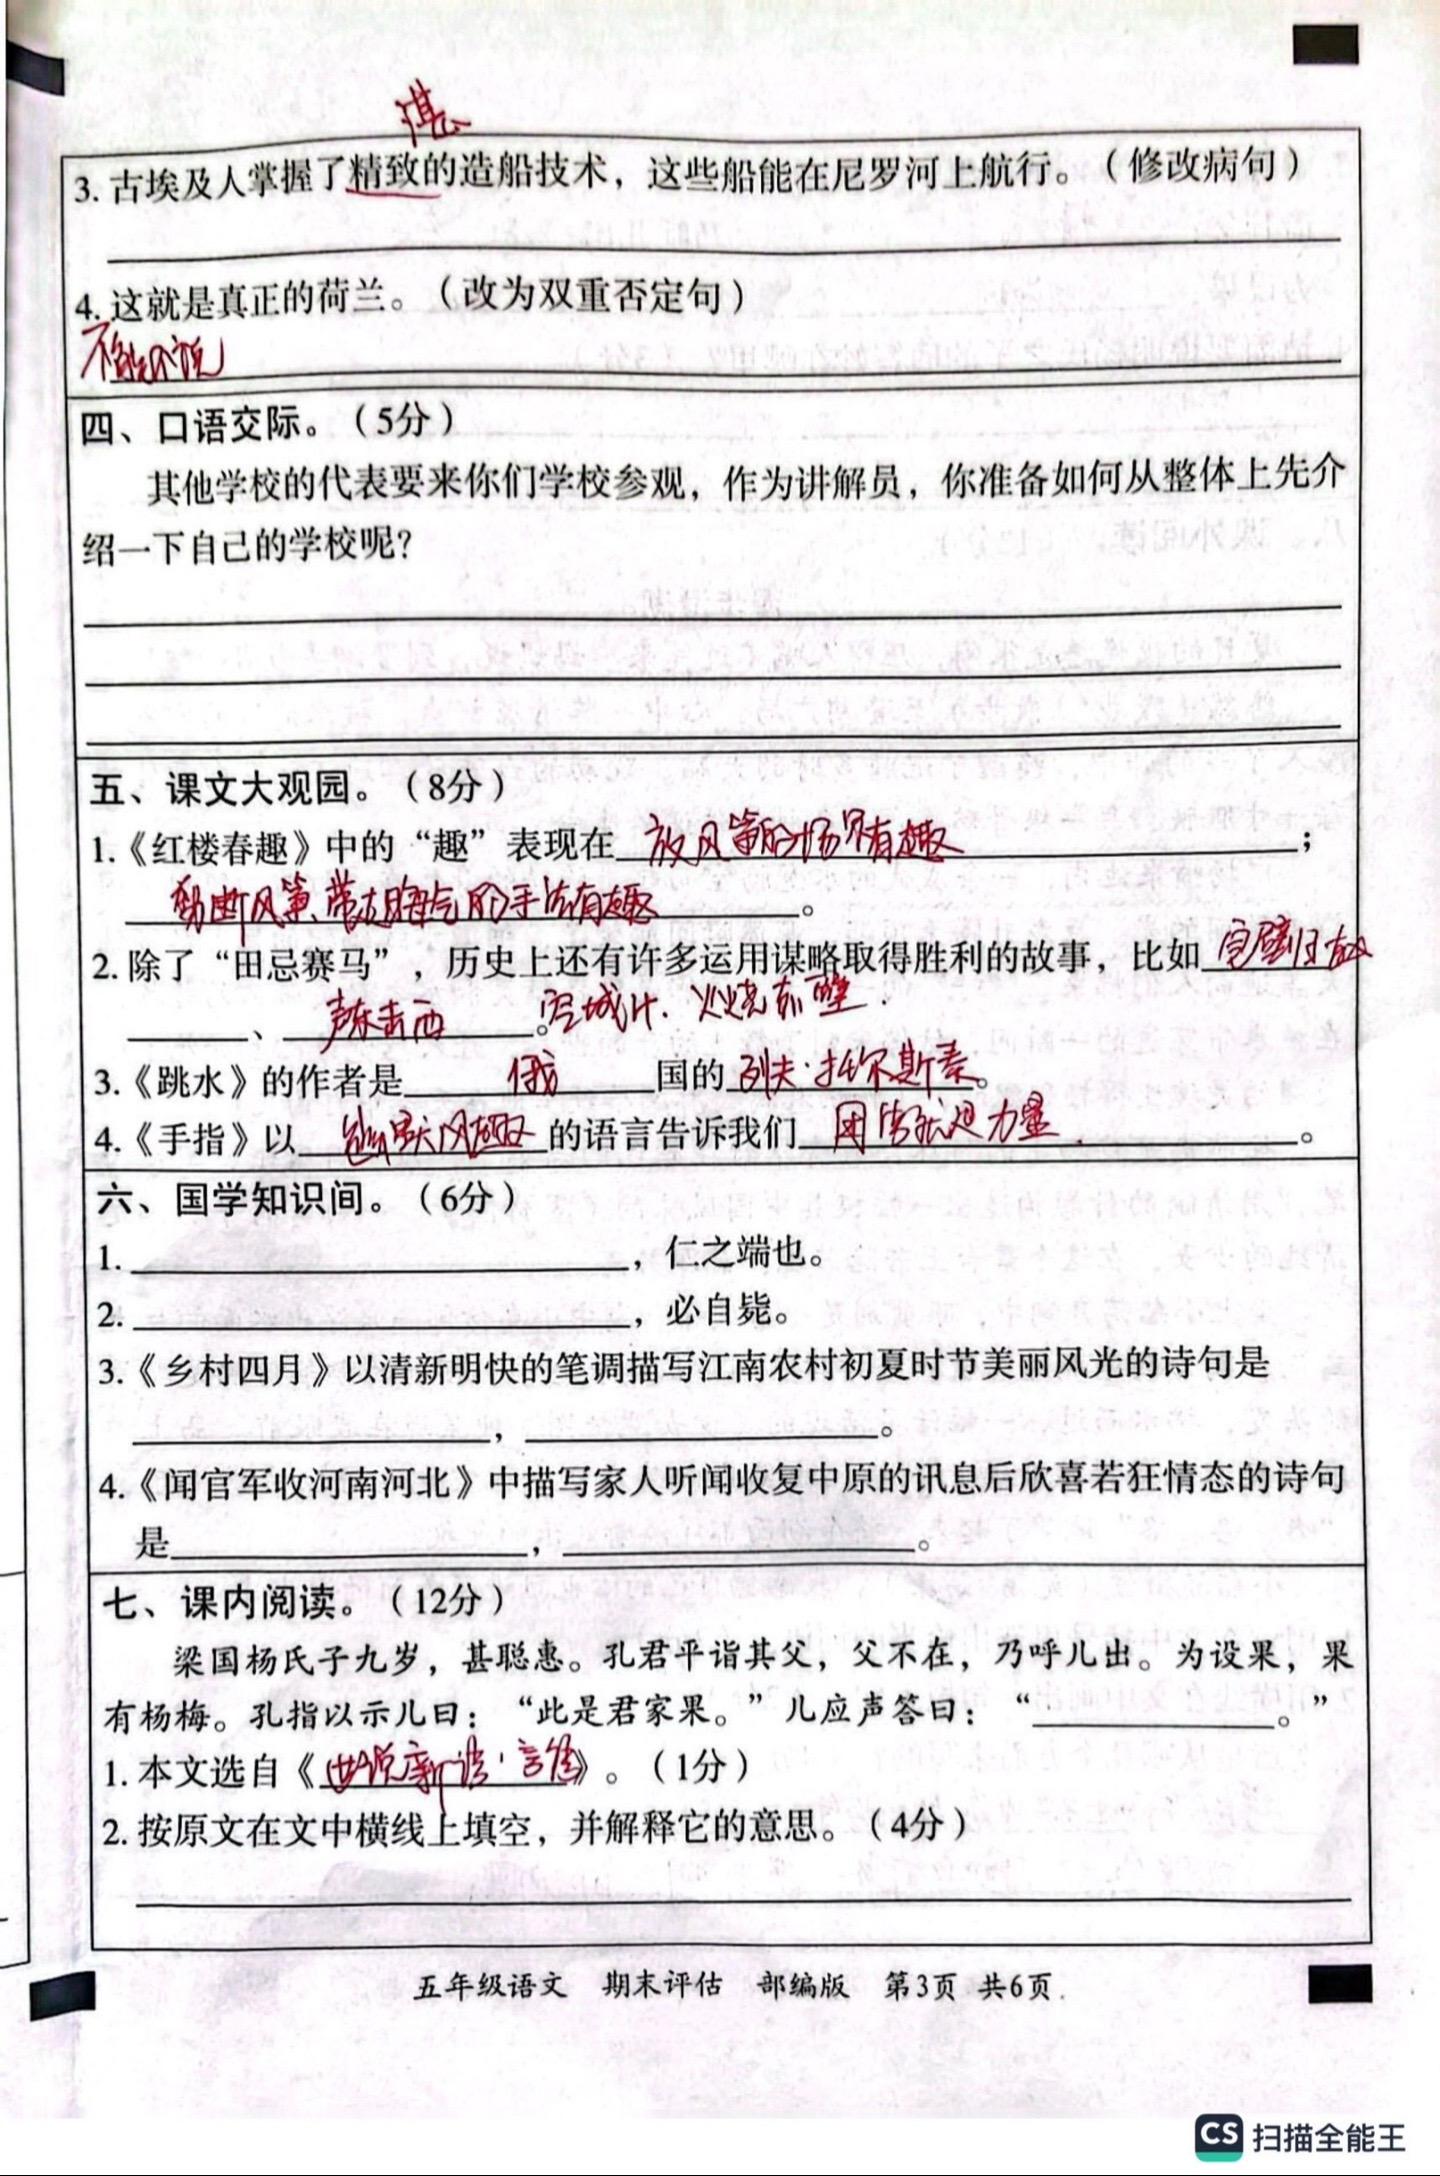 湛
3. 古埃及人掌握了精致的造船技术，这些船能在尼罗河上航行。（修改病句）
4. 这就是真正的荷兰。（改为双重否定句）
不能不说
四、口语交际。（5分）
其他学校的代表要来你们学校参观，作为讲解员，你准备如何从整体上先介
绍一下自己的学校呢？
五、课文大观园。（8分）
1.《红楼春趣》中的“趣”表现在放风筝的场景有趣；
剪断风筝、带走晦气的手法有趣。
2. 除了“田忌赛马”，历史上还有许多运用谋略取得胜利的故事，比如完璧归赵
、声东击西。空城计、火烧赤壁.
3.《跳水》的作者是俄国的列夫·托尔斯泰。
4.《手指》以幽默风趣的语言告诉我们团结就是力量.。
六、国学知识间。（6分）
1.，仁之端也。
2.，必自毙。
3.《乡村四月》以清新明快的笔调描写江南农村初夏时节美丽风光的诗句是
，。
4.《闻官军收河南河北》中描写家人听闻收复中原的讯息后欣喜若狂情态的诗句
是，。
七、课内阅读。（12分）
梁国杨氏子九岁，甚聪惠。孔君平诣其父，父不在，乃呼儿出。为设果，果
有杨梅。孔指以示儿曰：“此是君家果。”儿应声答曰：“。”
1. 本文选自《世说新语·言语》。（1分）
2. 按原文在文中横线上填空，并解释它的意思。（4分）
五年级语文 期末评估 部编版 第3页 共6页
CS 扫描全能王